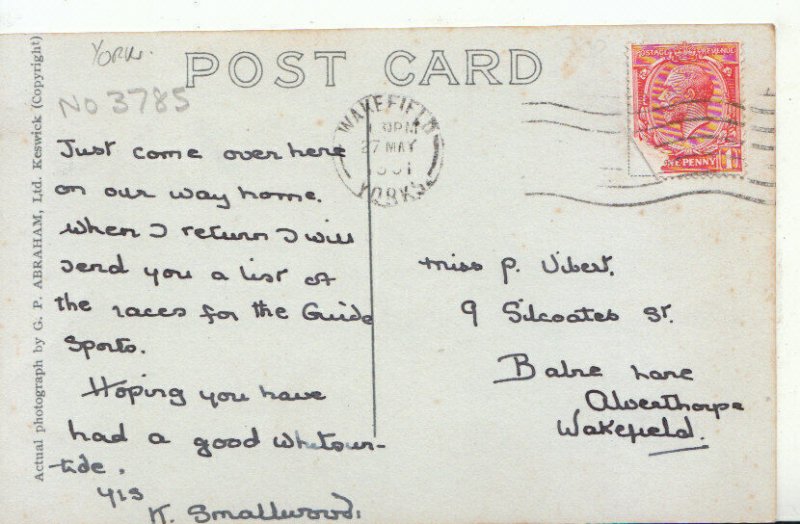 York.
POST CARD
No 3785
Actual photograph by G. P. ABRAHAM, Ltd. Keswick (Copyright)
WAKEFIELD
PM
27 MAY
YORKS.
POSTAGE REVENUE
ONE PENNY
Just come over here
on our way home.
When I return I will
send you a list of
the races for the Guide
Sports.
Hoping you have
had a good Whitsun-
tide.
yrs
K. Smallwood.
Miss P. Vibert.
9 Silcoates St.
Balne Lane
Alverthorpe
Wakefield.